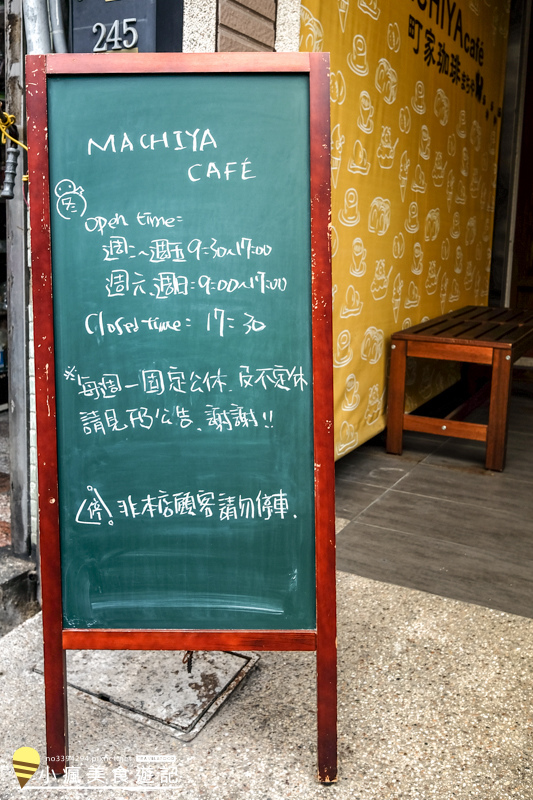 245
MACHIYAcafé
町家珈琲
MACHIYA
CAFÉ
Open time=
週二~週五 9=30~17=00
週六、週日=9=00~17=00
Closed time= 17=30
※每週一固定公休.及不定休
請見FB公告、謝謝!!
停!非本店顧客請勿停車.
小瘋美食遊記